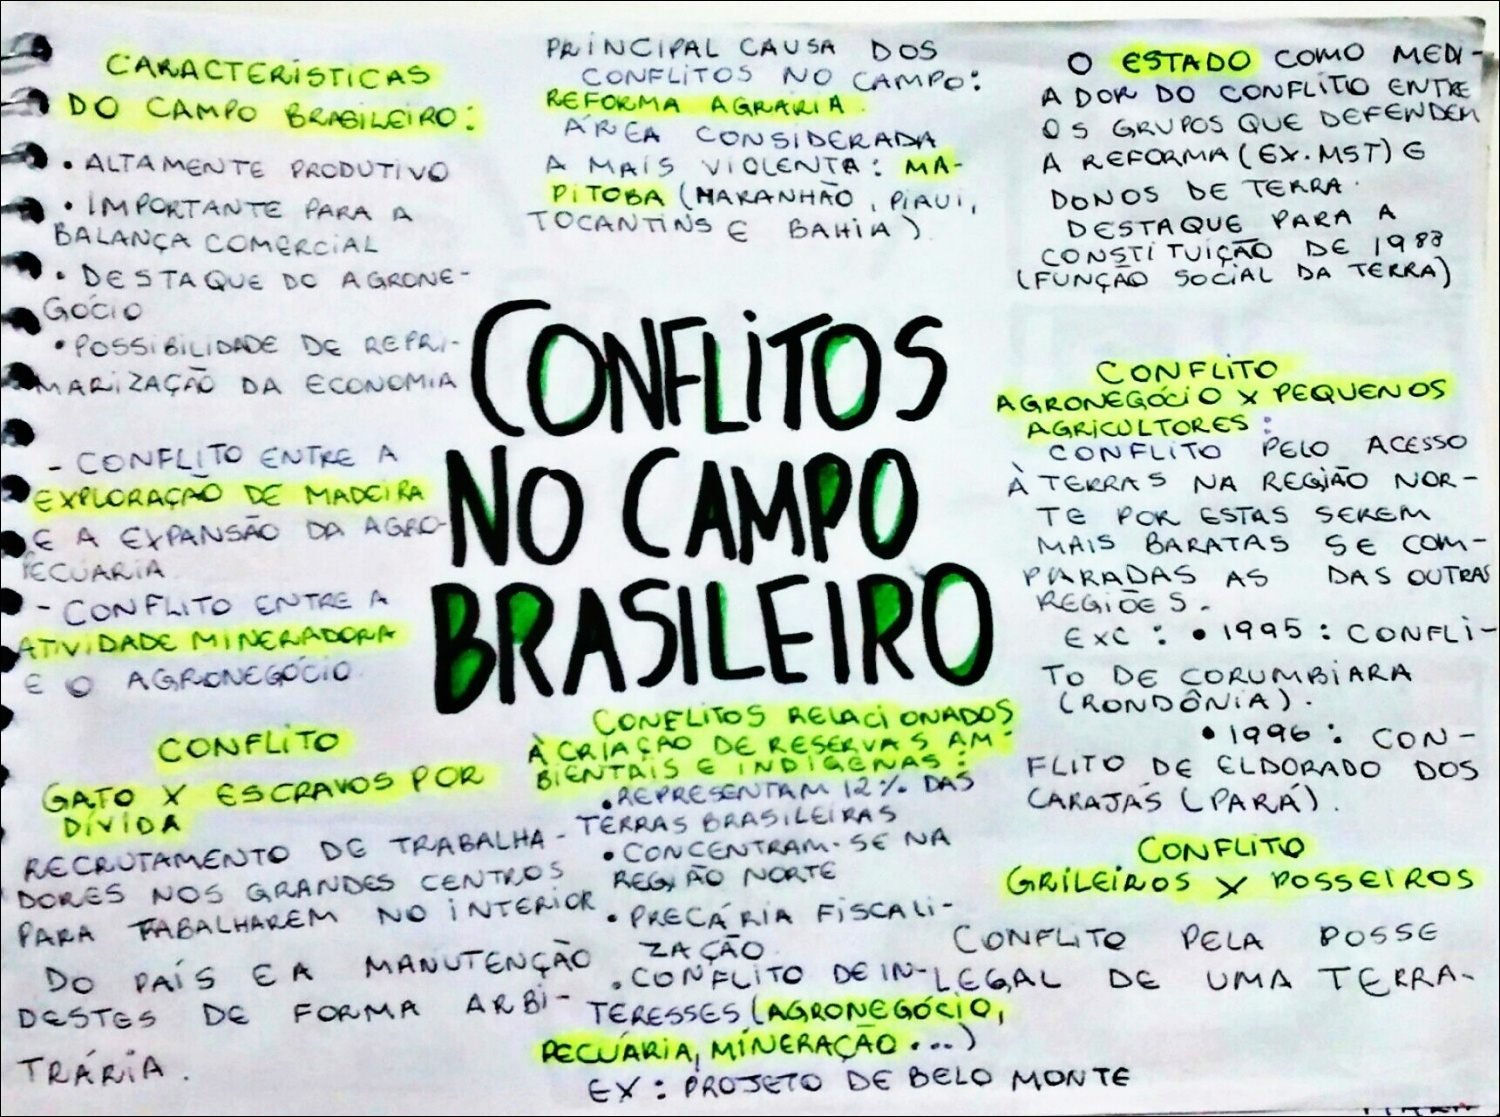 CARACTERÍSTICAS
DO CAMPO BRASILEIRO:
• ALTAMENTE PRODUTIVO
• IMPORTANTE PARA A
BALANÇA COMERCIAL
• DESTAQUE DO AGRONE-
GÓCIO
• POSSIBILIDADE DE REPRI-
MARIZAÇÃO DA ECONOMIA
- CONFLITO ENTRE A
EXPLORAÇÃO DE MADEIRA
E A EXPANSÃO DA AGRO-
PECUÁRIA
- CONFLITO ENTRE A
ATIVIDADE MINERADORA
E O AGRONEGÓCIO
CONFLITO
GATO X ESCRAVOS POR
DÍVIDA
RECRUTAMENTO DE TRABALHA-
DORES NOS GRANDES CENTROS
PARA TABALHAREM NO INTERIOR
DO PAÍS E A MANUTENÇÃO
DESTES DE FORMA ARBI-
TRÁRIA.
PRINCIPAL CAUSA DOS
CONFLITOS NO CAMPO:
REFORMA AGRÁRIA.
ÁREA CONSIDERADA
A MAIS VIOLENTA: MA-
PITOBA (MARANHÃO, PIAUI,
TOCANTINS E BAHIA)
CONFLITOS
NO CAMPO
BRASILEIRO
CONFLITOS RELACIONADOS
À CRIAÇÃO DE RESERVAS AM-
BIENTAIS E INDÍGENAS:
• REPRESENTAM 12% DAS
TERRAS BRASILEIRAS
• CONCENTRAM-SE NA
REGIÃO NORTE
• PRECÁRIA FISCALI-
ZAÇÃO
• CONFLITO DE IN-
TERESSES (AGRONEGÓCIO,
PECUÁRIA, MINERAÇÃO...)
EX: PROJETO DE BELO MONTE
O ESTADO COMO MEDI-
ADOR DO CONFLITO ENTRE
OS GRUPOS QUE DEFENDEM
A REFORMA (EX. MST) E
DONOS DE TERRA.
DESTAQUE PARA A
CONSTITUIÇÃO DE 1988
(FUNÇÃO SOCIAL DA TERRA)
CONFLITO
AGRONEGÓCIO X PEQUENOS
AGRICULTORES:
CONFLITO PELO ACESSO
À TERRAS NA REGIÃO NOR-
TE POR ESTAS SEREM
MAIS BARATAS SE COM-
PARADAS AS DAS OUTRAS
REGIÕES.
EXC: • 1995: CONFLI-
TO DE CORUMBIARA
(RONDÔNIA).
• 1996: CON-
FLITO DE ELDORADO DOS
CARAJÁS (PARÁ).
CONFLITO
GRILEIROS X POSSEIROS
CONFLITO PELA POSSE
LEGAL DE UMA TERRA.